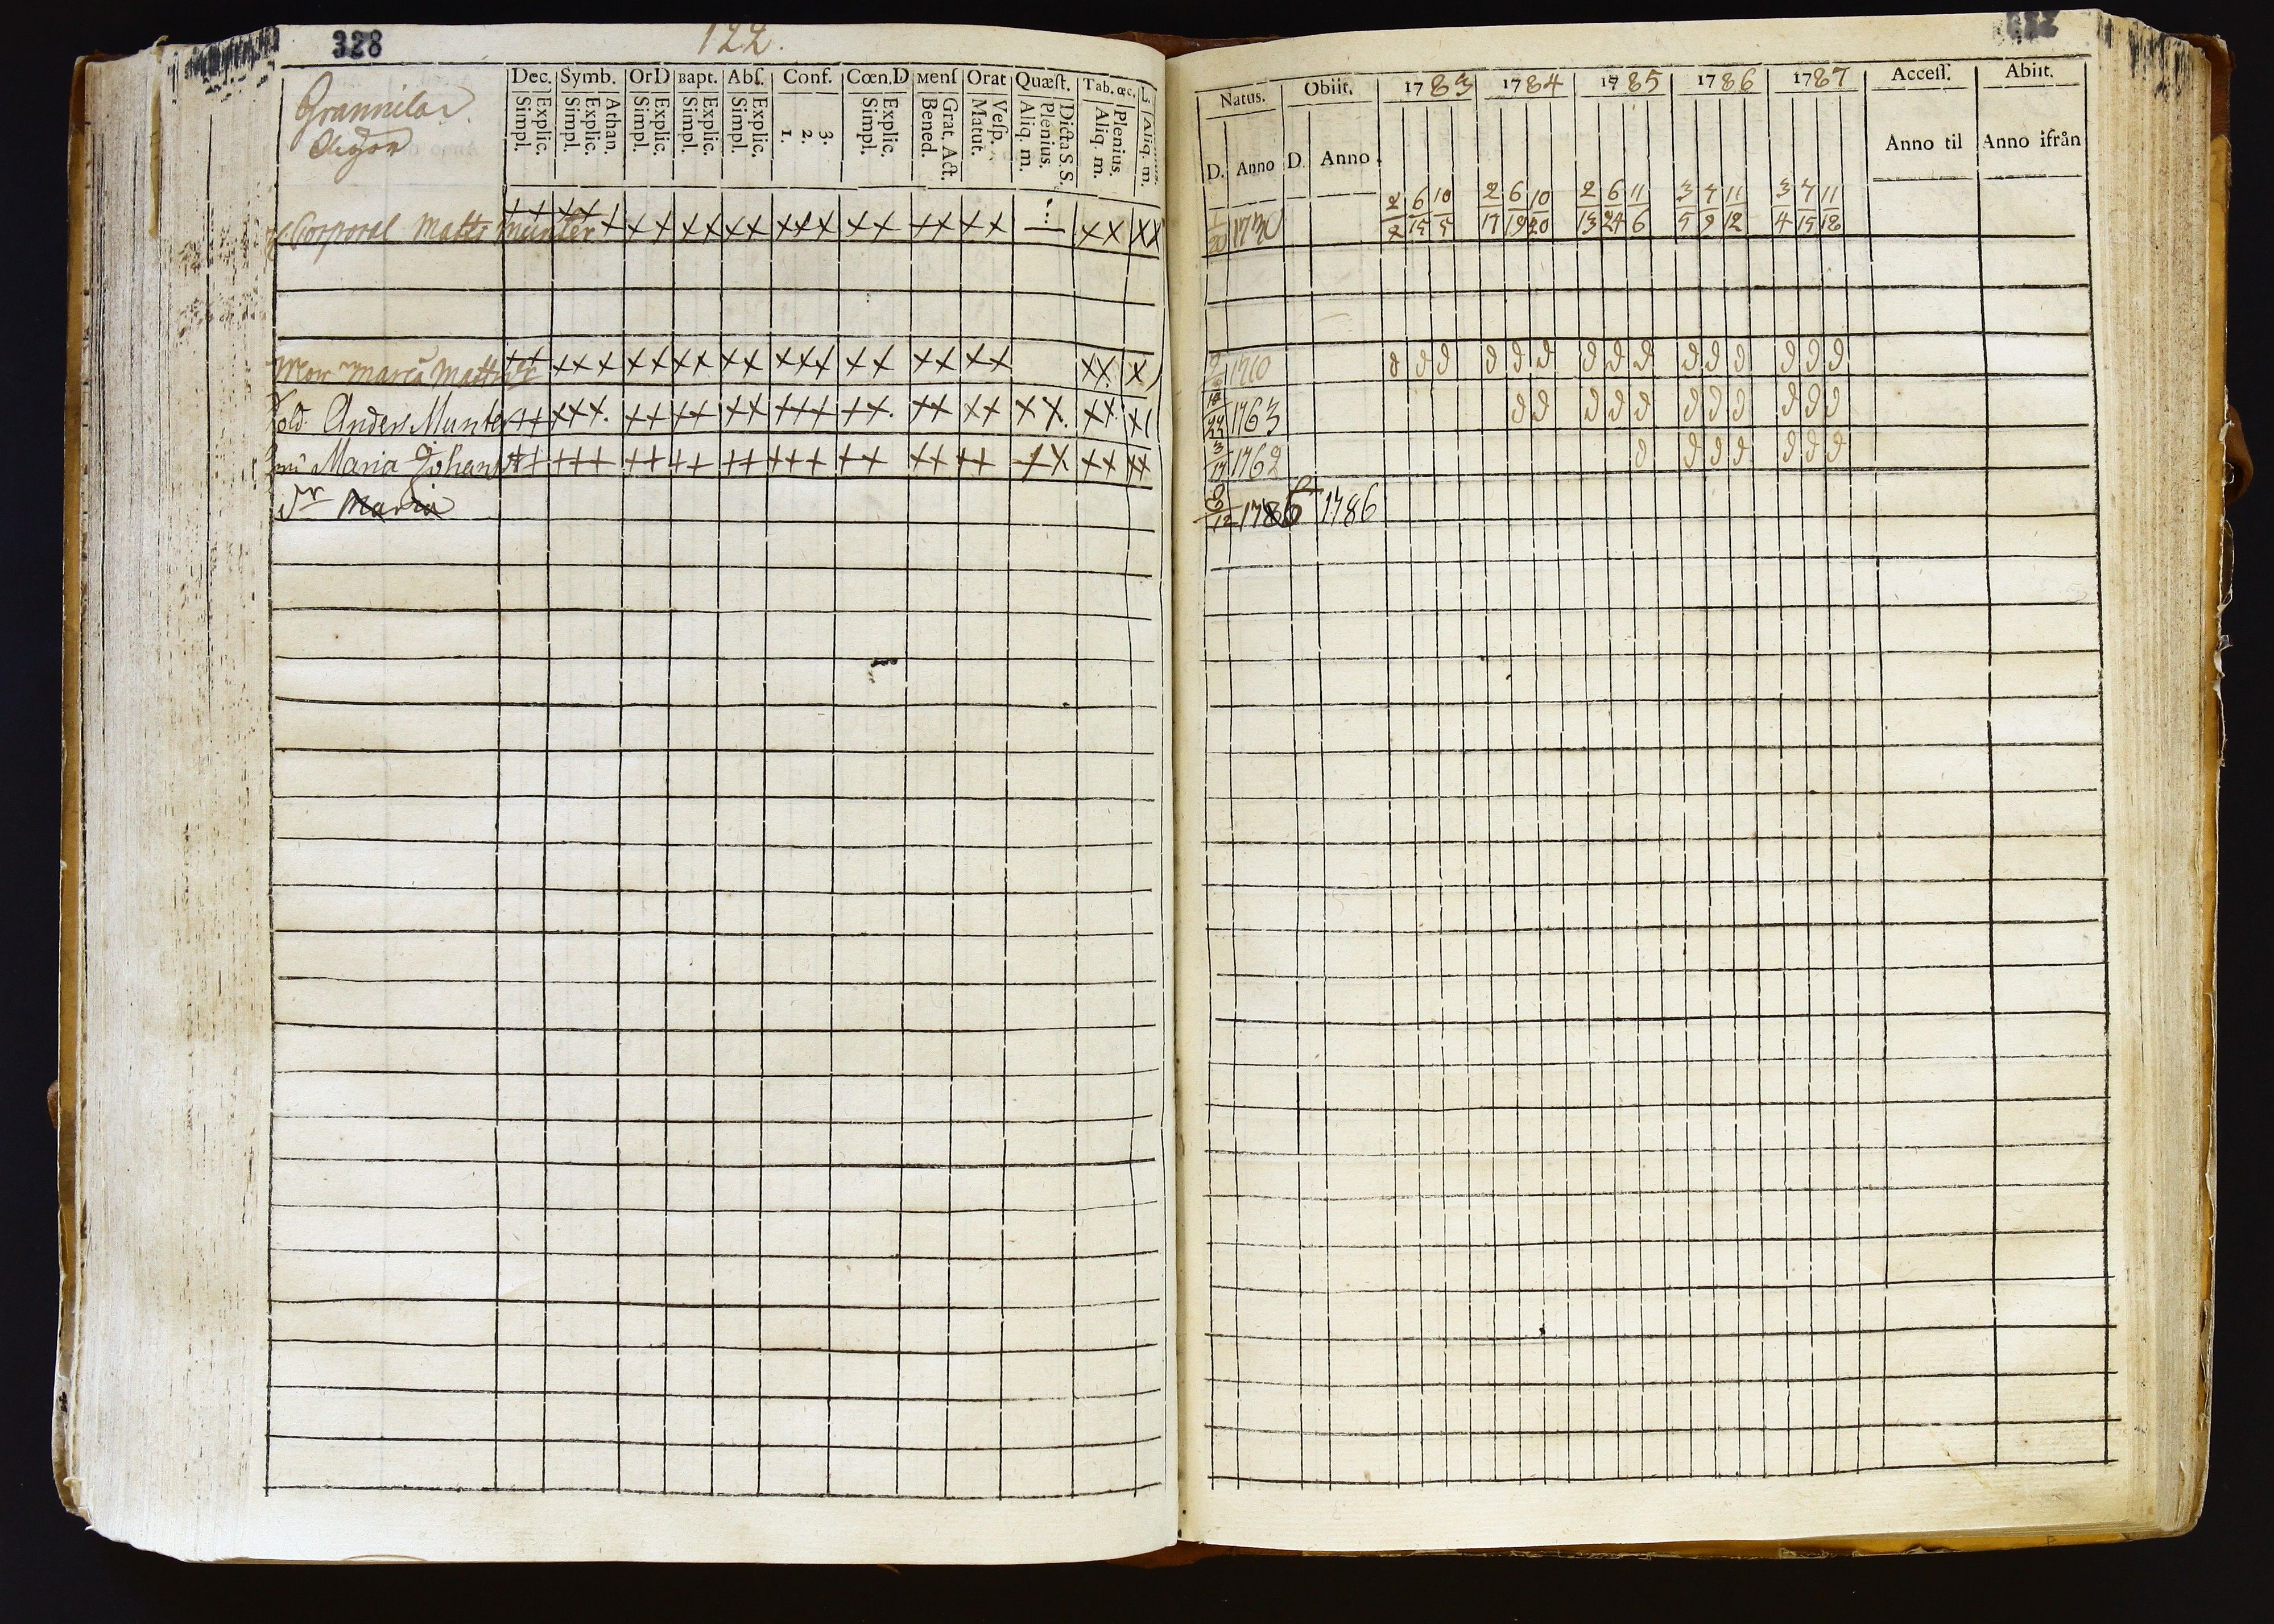 328
122.
Dec. Symb. Or D Bapt. Abſ. Conf. Cœn. D Menſ Orat Quæſt. Tab. œc. L.
Explic. Simpl. Athan. Explic. Simpl. Explic. Simpl. Explic. Simpl. Explic. Simpl. 3. 2. 1. Explic. Simpl. Grat. Act. Bened. Veſp. Matut. Dicta S.S. Plenius. Aliq. m. Plenius. Aliq. m. Aliq. m.
Corporal Matts Munter ++ +++ ++ ++ ++ +++ ++ ++ ++ — ++ ++
Maria Matts ++ +++ ++ ++ ++ +++ ++ ++ ++ ++
Sold. Anders Munter ++ +++ ++ ++ ++ +++ ++ ++ ++ ++ ++
Maria Johans ++ +++ ++ ++ ++ +++ ++ ++ ++ ++ ++ ++
Dr Maria
Natus. Obiit. 1783 1784 1785 1786 1787 Acceſſ. Abiit.
D. Anno D. Anno Anno til Anno ifrån
2 6 10 2 6 10 2 6 11 3 7 11 3 7 11
20 1730 2 15 5 17 19 20 13 24 6 5 9 12 4 15 18
1710
1763
3
17 1762
12 1786 1786